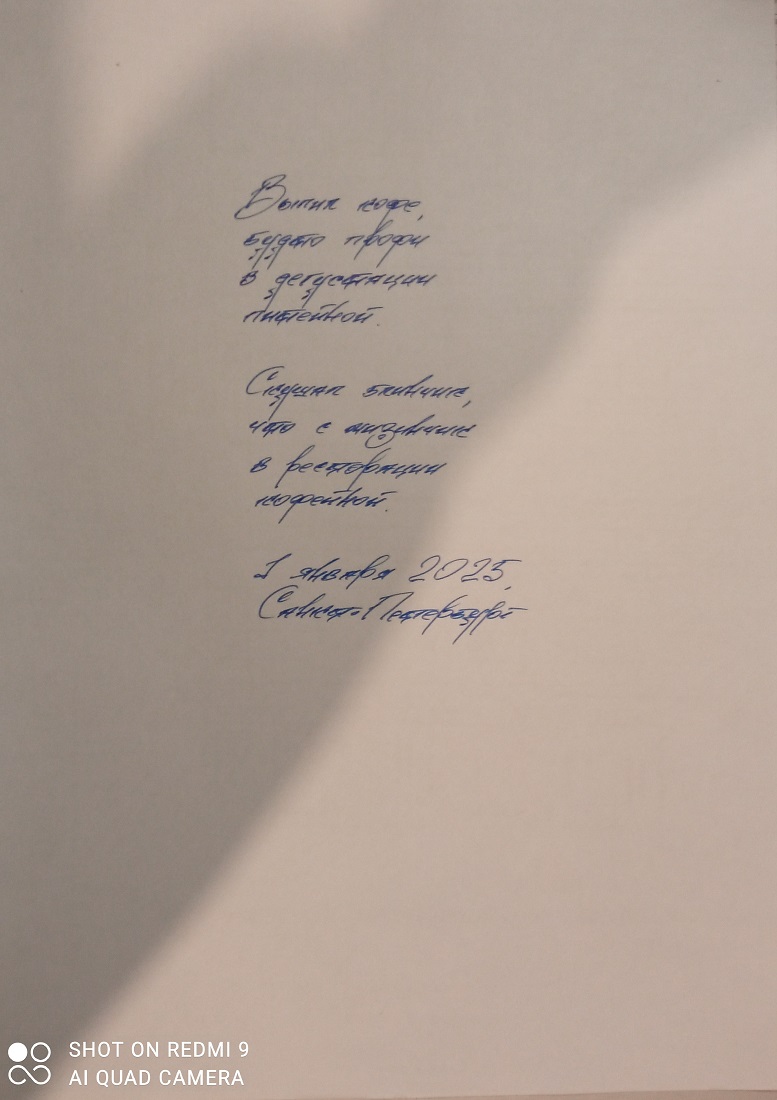 Выпил кофе,
будто профи
в дегустации
питейной.
Скушал блинчик,
что с мизинчик
в ресторации
кофейной.
1 января 2025,
Санкт-Петербург
SHOT ON REDMI 9
AI QUAD CAMERA